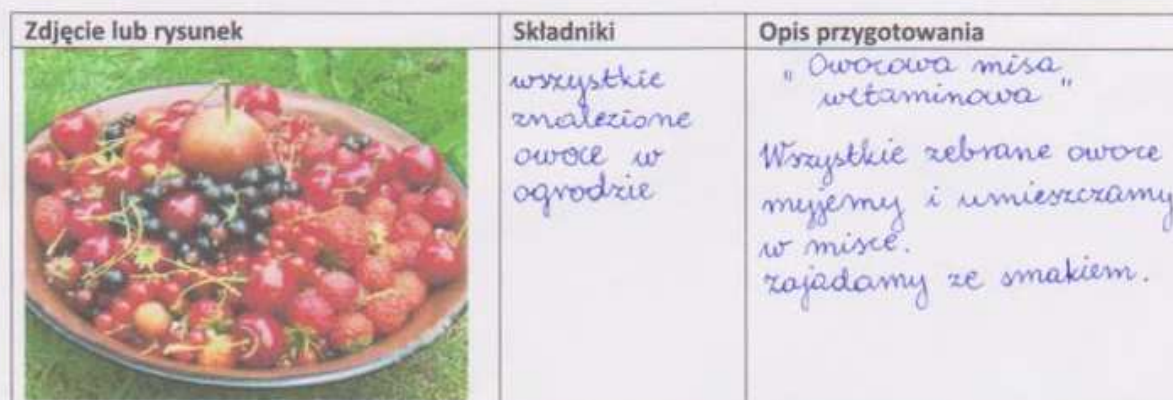 Zdjęcie lub rysunek
Składniki
Opis przygotowania
wszystkie
znalezione
owoce w
ogrodzie
„Owocowa misa
witaminowa"
Wszystkie zebrane owoce
myjemy i umieszczamy
w misce.
zajadamy ze smakiem.